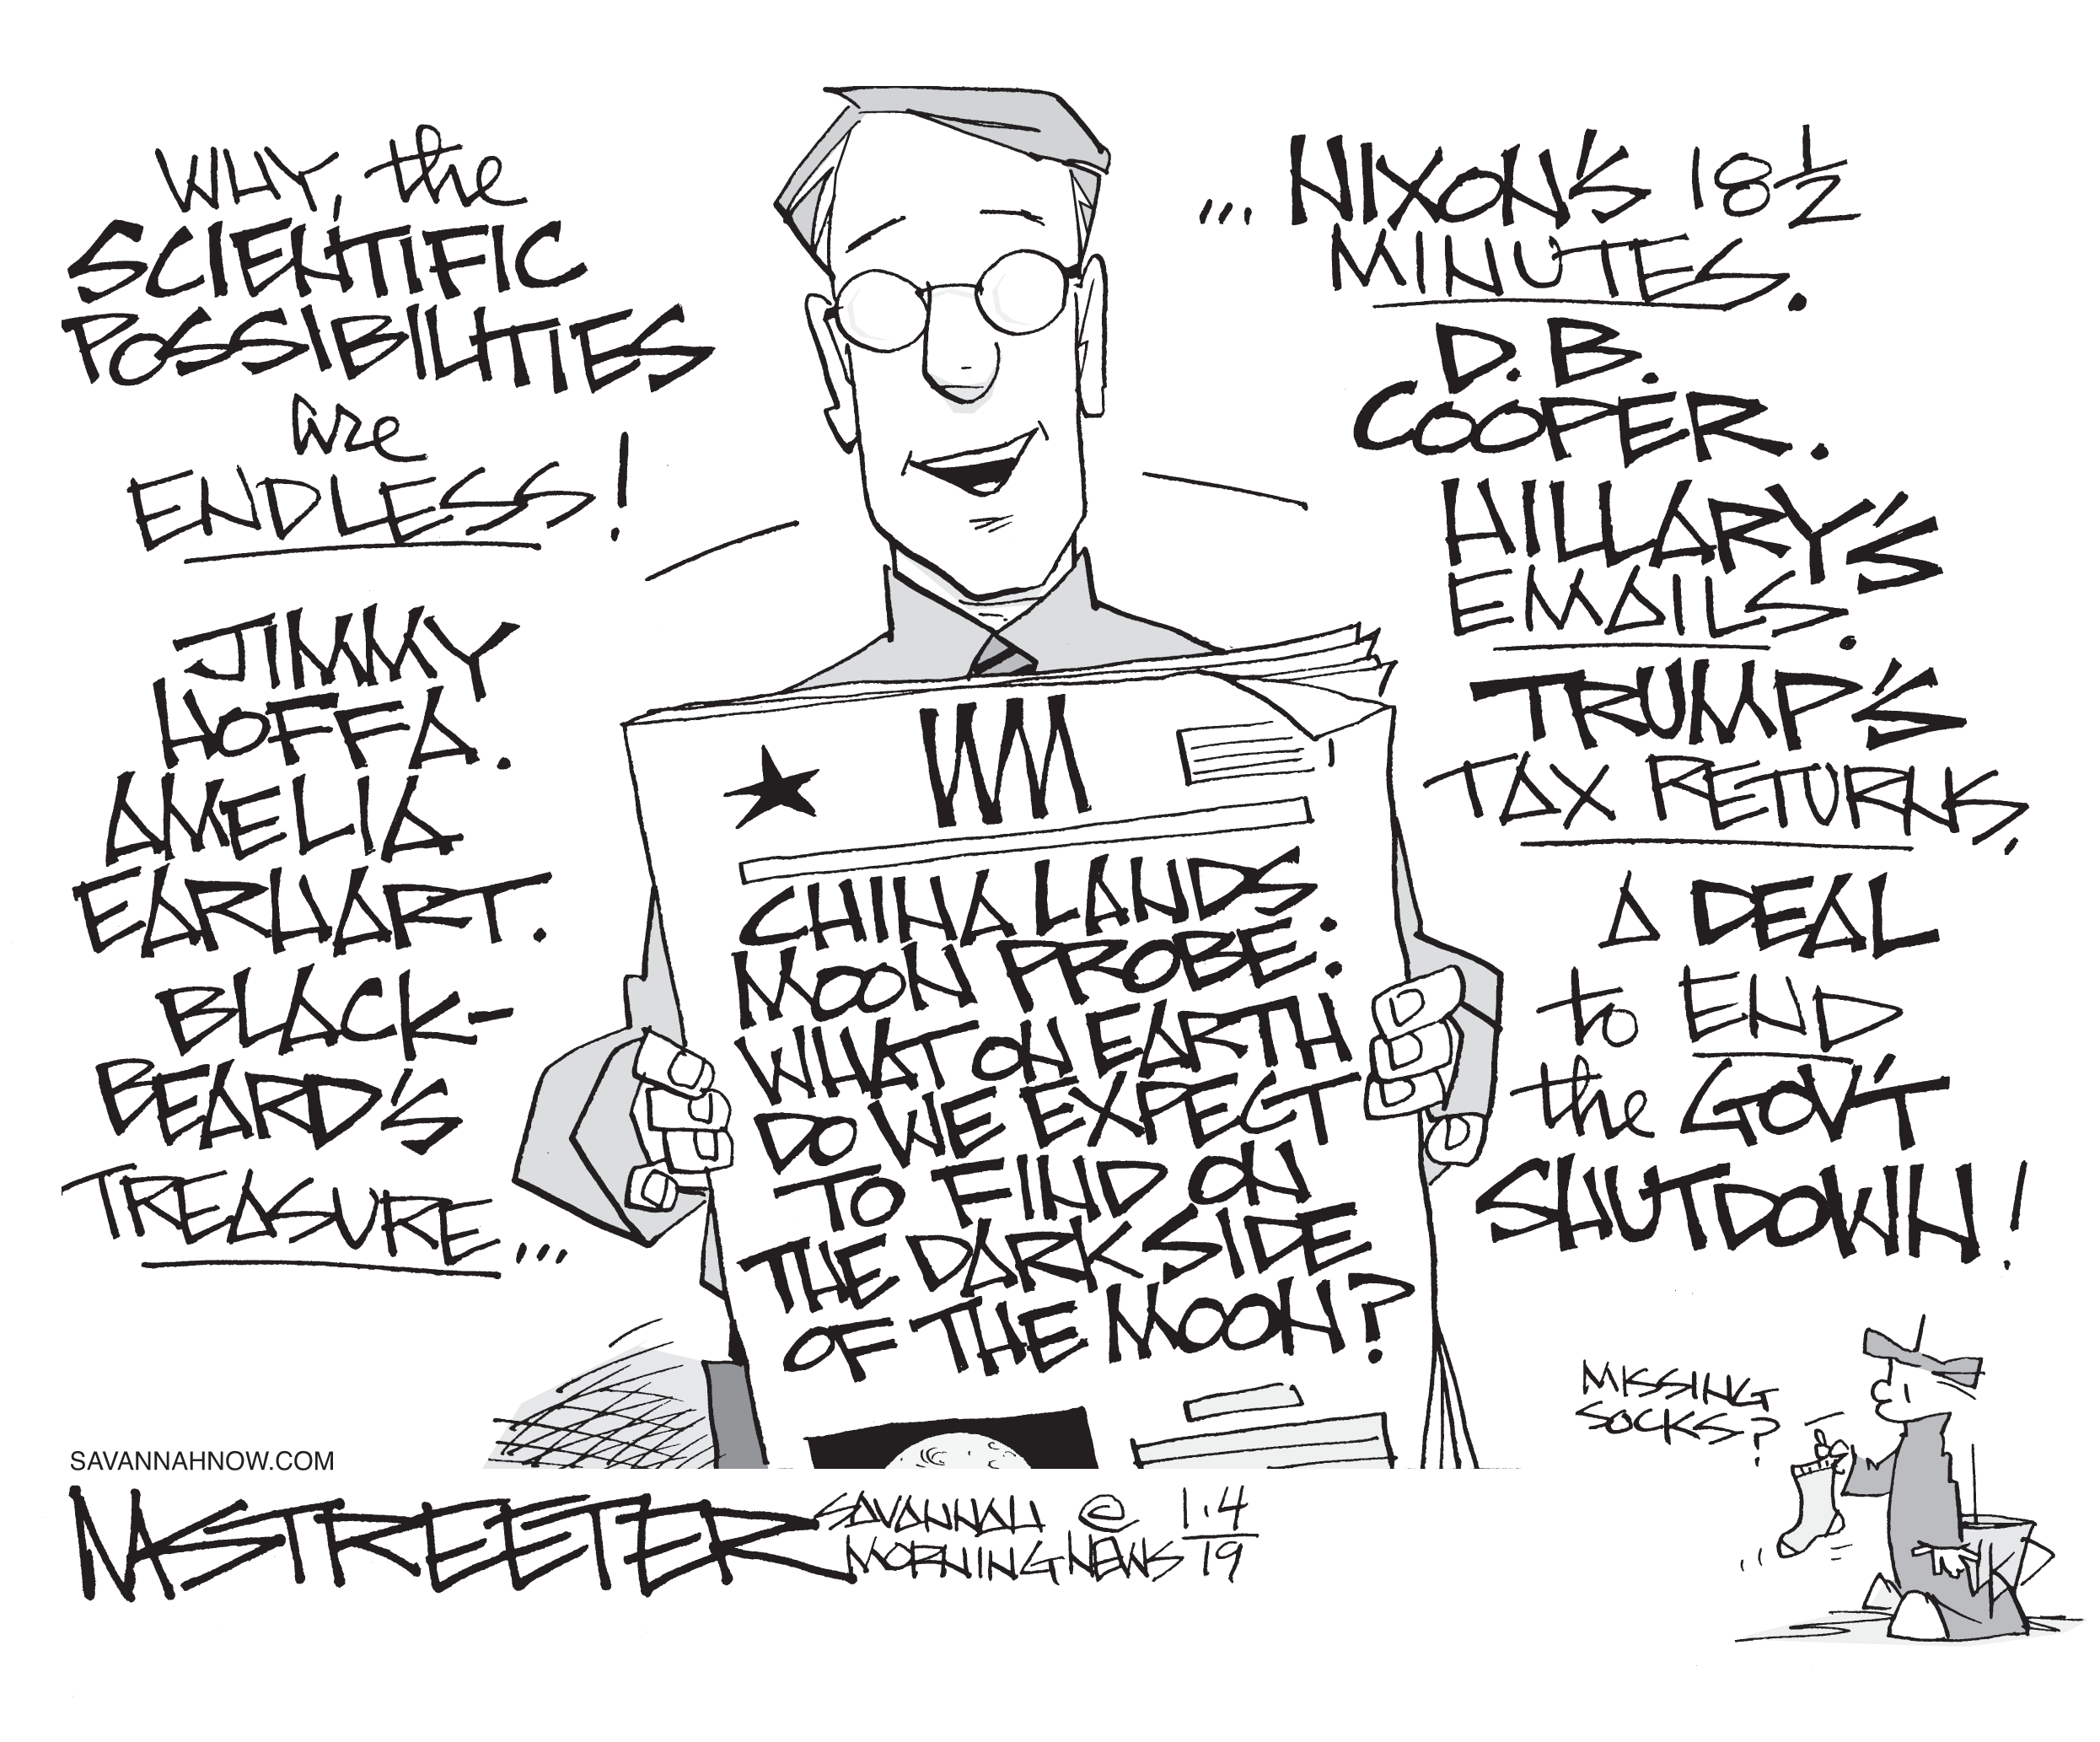 WHY, the
SCIENTIFIC
POSSIBILITIES
are
ENDLESS!
JIMMY
HOFFA.
AMELIA
EARHART.
BLACK-
BEARD'S
TREASURE...
...NIXON'S 18½
MINUTES.
D.B.
COOPER.
HILLARY'S
EMAILS.
TRUMP'S
TAX RETURNS,
A DEAL
to END
the GOV'T
SHUTDOWN!
CHINA LANDS
MOON PROBE:
WHAT ON EARTH
DO WE EXPECT
TO FIND ON
THE DARK SIDE
OF THE MOON?
MISSING
SOCKS?
SAVANNAHNOW.COM
M STREETER
SAVANNAH
MORNING NEWS
© 1·4
19